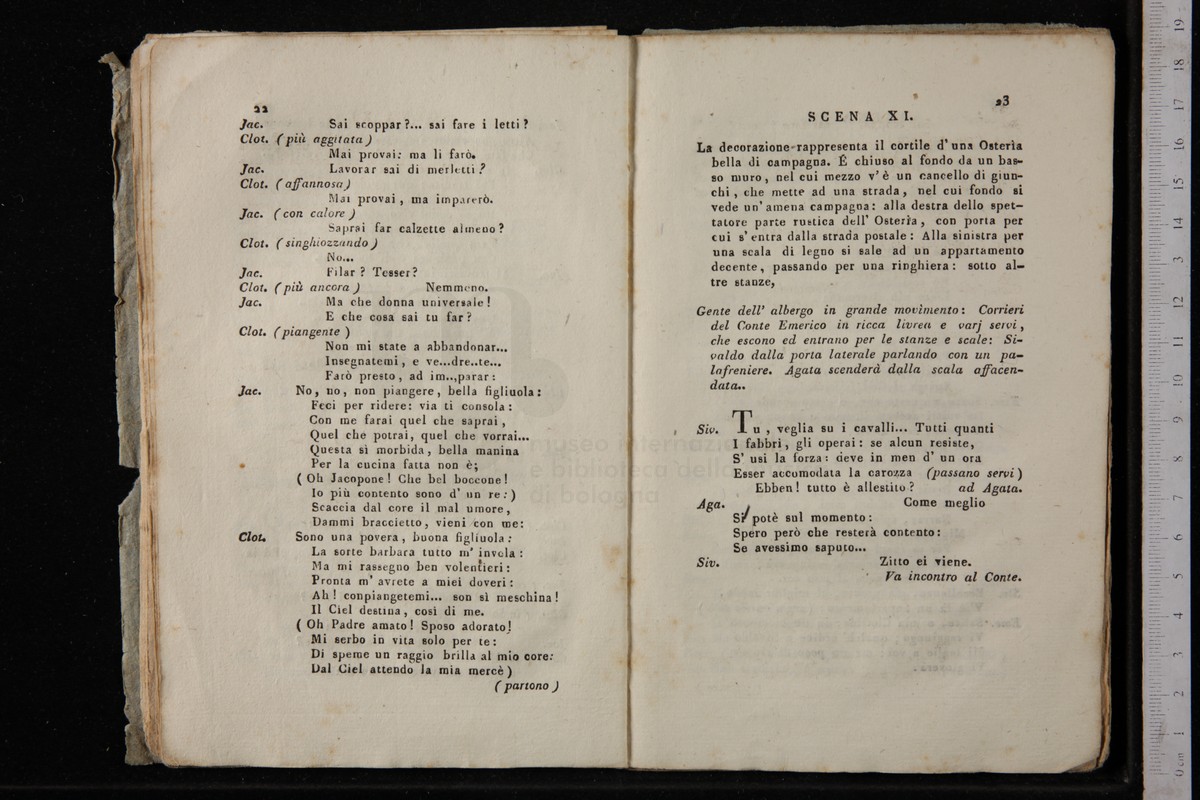 22
Jac. Sai scoppar?... sai fare i letti?
Clot. (più aggitata)
Mai provai: ma li farò.
Jac. Lavorar sai di merletti?
Clot. (affannosa)
Mai provai, ma imparerò.
Jac. (con calore)
Saprai far calzette almeno?
Clot. (singhiozzando)
No...
Jac. Filar? Tesser?
Clot. (più ancora) Nemmeno.
Jac. Ma che donna universale!
E che cosa sai tu far?
Clot. (piangente)
Non mi state a abbandonar...
Insegnatemi, e ve...dre..te...
Farò presto, ad im..,parar:
Jac. No, no, non piangere, bella figliuola:
Feci per ridere: via ti consola:
Con me farai quel che saprai,
Quel che potrai, quel che vorrai...
Questa sì morbida, bella manina
Per la cucina fatta non è;
(Oh Jacopone! Che bel boccone!
Io più contento sono d' un re:)
Scaccia dal core il mal umore,
Dammi braccietto, vieni con me:
Clot. Sono una povera, buona figliuola:
La sorte barbara tutto m' invola:
Ma mi rassegno ben volentieri:
Pronta m' avrete a miei doveri:
Ah! conpiangetemi... son sì meschina!
Il Ciel destina, così di me.
(Oh Padre amato! Sposo adorato!
Mi serbo in vita solo per te:
Di speme un raggio brilla al mio core:
Dal Ciel attendo la mia mercè)
(partono)
23
SCENA XI.
La decorazione rappresenta il cortile d' una Osterìa
bella di campagna. É chiuso al fondo da un bas-
so muro, nel cui mezzo v' è un cancello di giun-
chi, che mette ad una strada, nel cui fondo si
vede un' amena campagna: alla destra dello spet-
tatore parte rustica dell' Osterìa, con porta per
cui s' entra dalla strada postale: Alla sinistra per
una scala di legno si sale ad un appartamento
decente, passando per una ringhiera: sotto al-
tre stanze,
Gente dell' albergo in grande movimento: Corrieri
del Conte Emerico in ricca livrea e varj servi,
che escono ed entrano per le stanze e scale: Si-
valdo dalla porta laterale parlando con un pa-
lafreniere. Agata scenderà dalla scala affacen-
data..
Siv. Tu, veglia su i cavalli... Tutti quanti
I fabbri, gli operai: se alcun resiste,
S' usi la forza: deve in men d' un ora
Esser accomodata la carozza (passano servi)
Ebben! tutto è allestito? ad Agata.
Aga. Come meglio
Si potè sul momento:
Spero però che resterà contento:
Se avessimo saputo...
Siv. Zitto ei viene.
Va incontro al Conte.
museo internazio
e biblioteca della
di bologna
0 cm 1 2 3 4 5 6 7 8 9 10 11 12 13 14 15 16 17 18 19